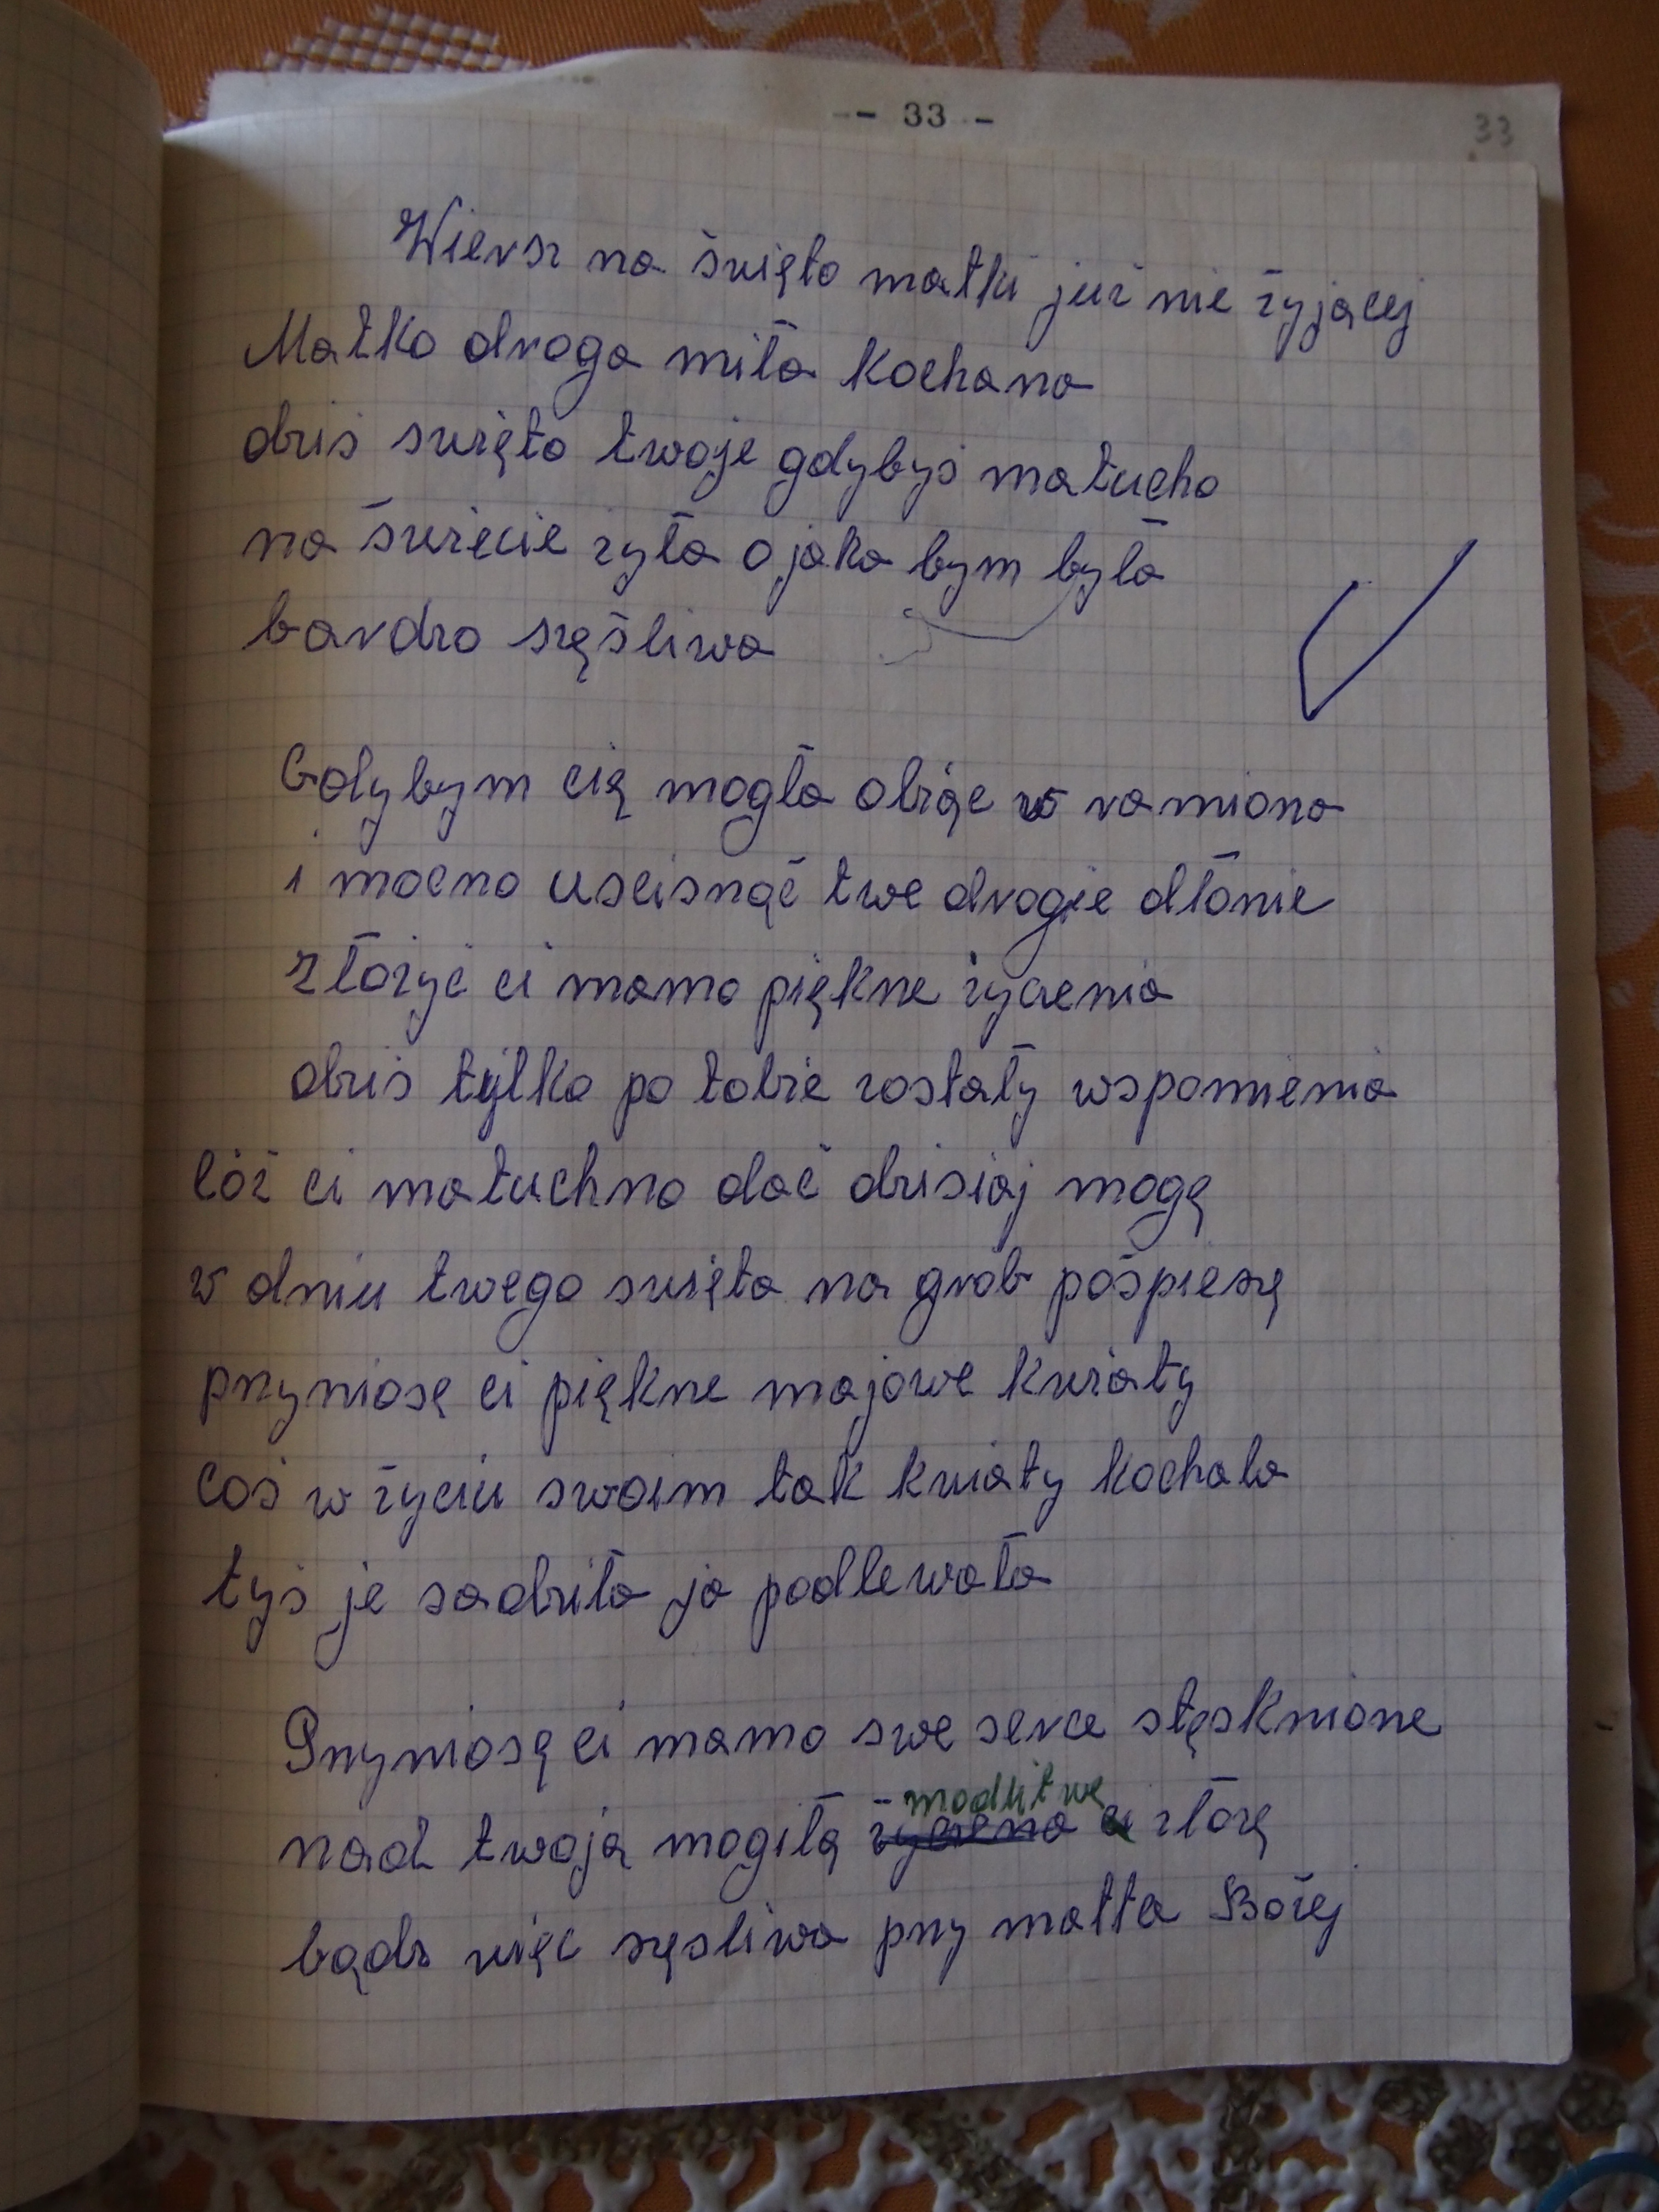 - 33 -
33
Wiersz na święto matki już nie żyjącej
Matko droga miła kochana
dziś swięto twoje gdybyś matucho
na świecie zyła o jaka bym była
bardzo szęśliwa
Gdybym cię mogła obiąc w ramiona
i mocno uscisnąć twe drogie dłonie
złożyć ci mamo piękne życzenia
dziś tylko po tobie zostały wspomienia
Cóż ci matuchno dać dzisiaj mogę
w dniu twego swięta na grób pośpieszę
przyniosę ci piękne majowe kwiaty
Coś w życiu swoim tak kwiaty kochala
tyś je sadziła ja podlewała
Przyniosę ci mamo swe serce stęsknione
modlitwę
nad twoją mogiłą życzena ci złożę
bądz więc szęsliwa przy matta Bożej